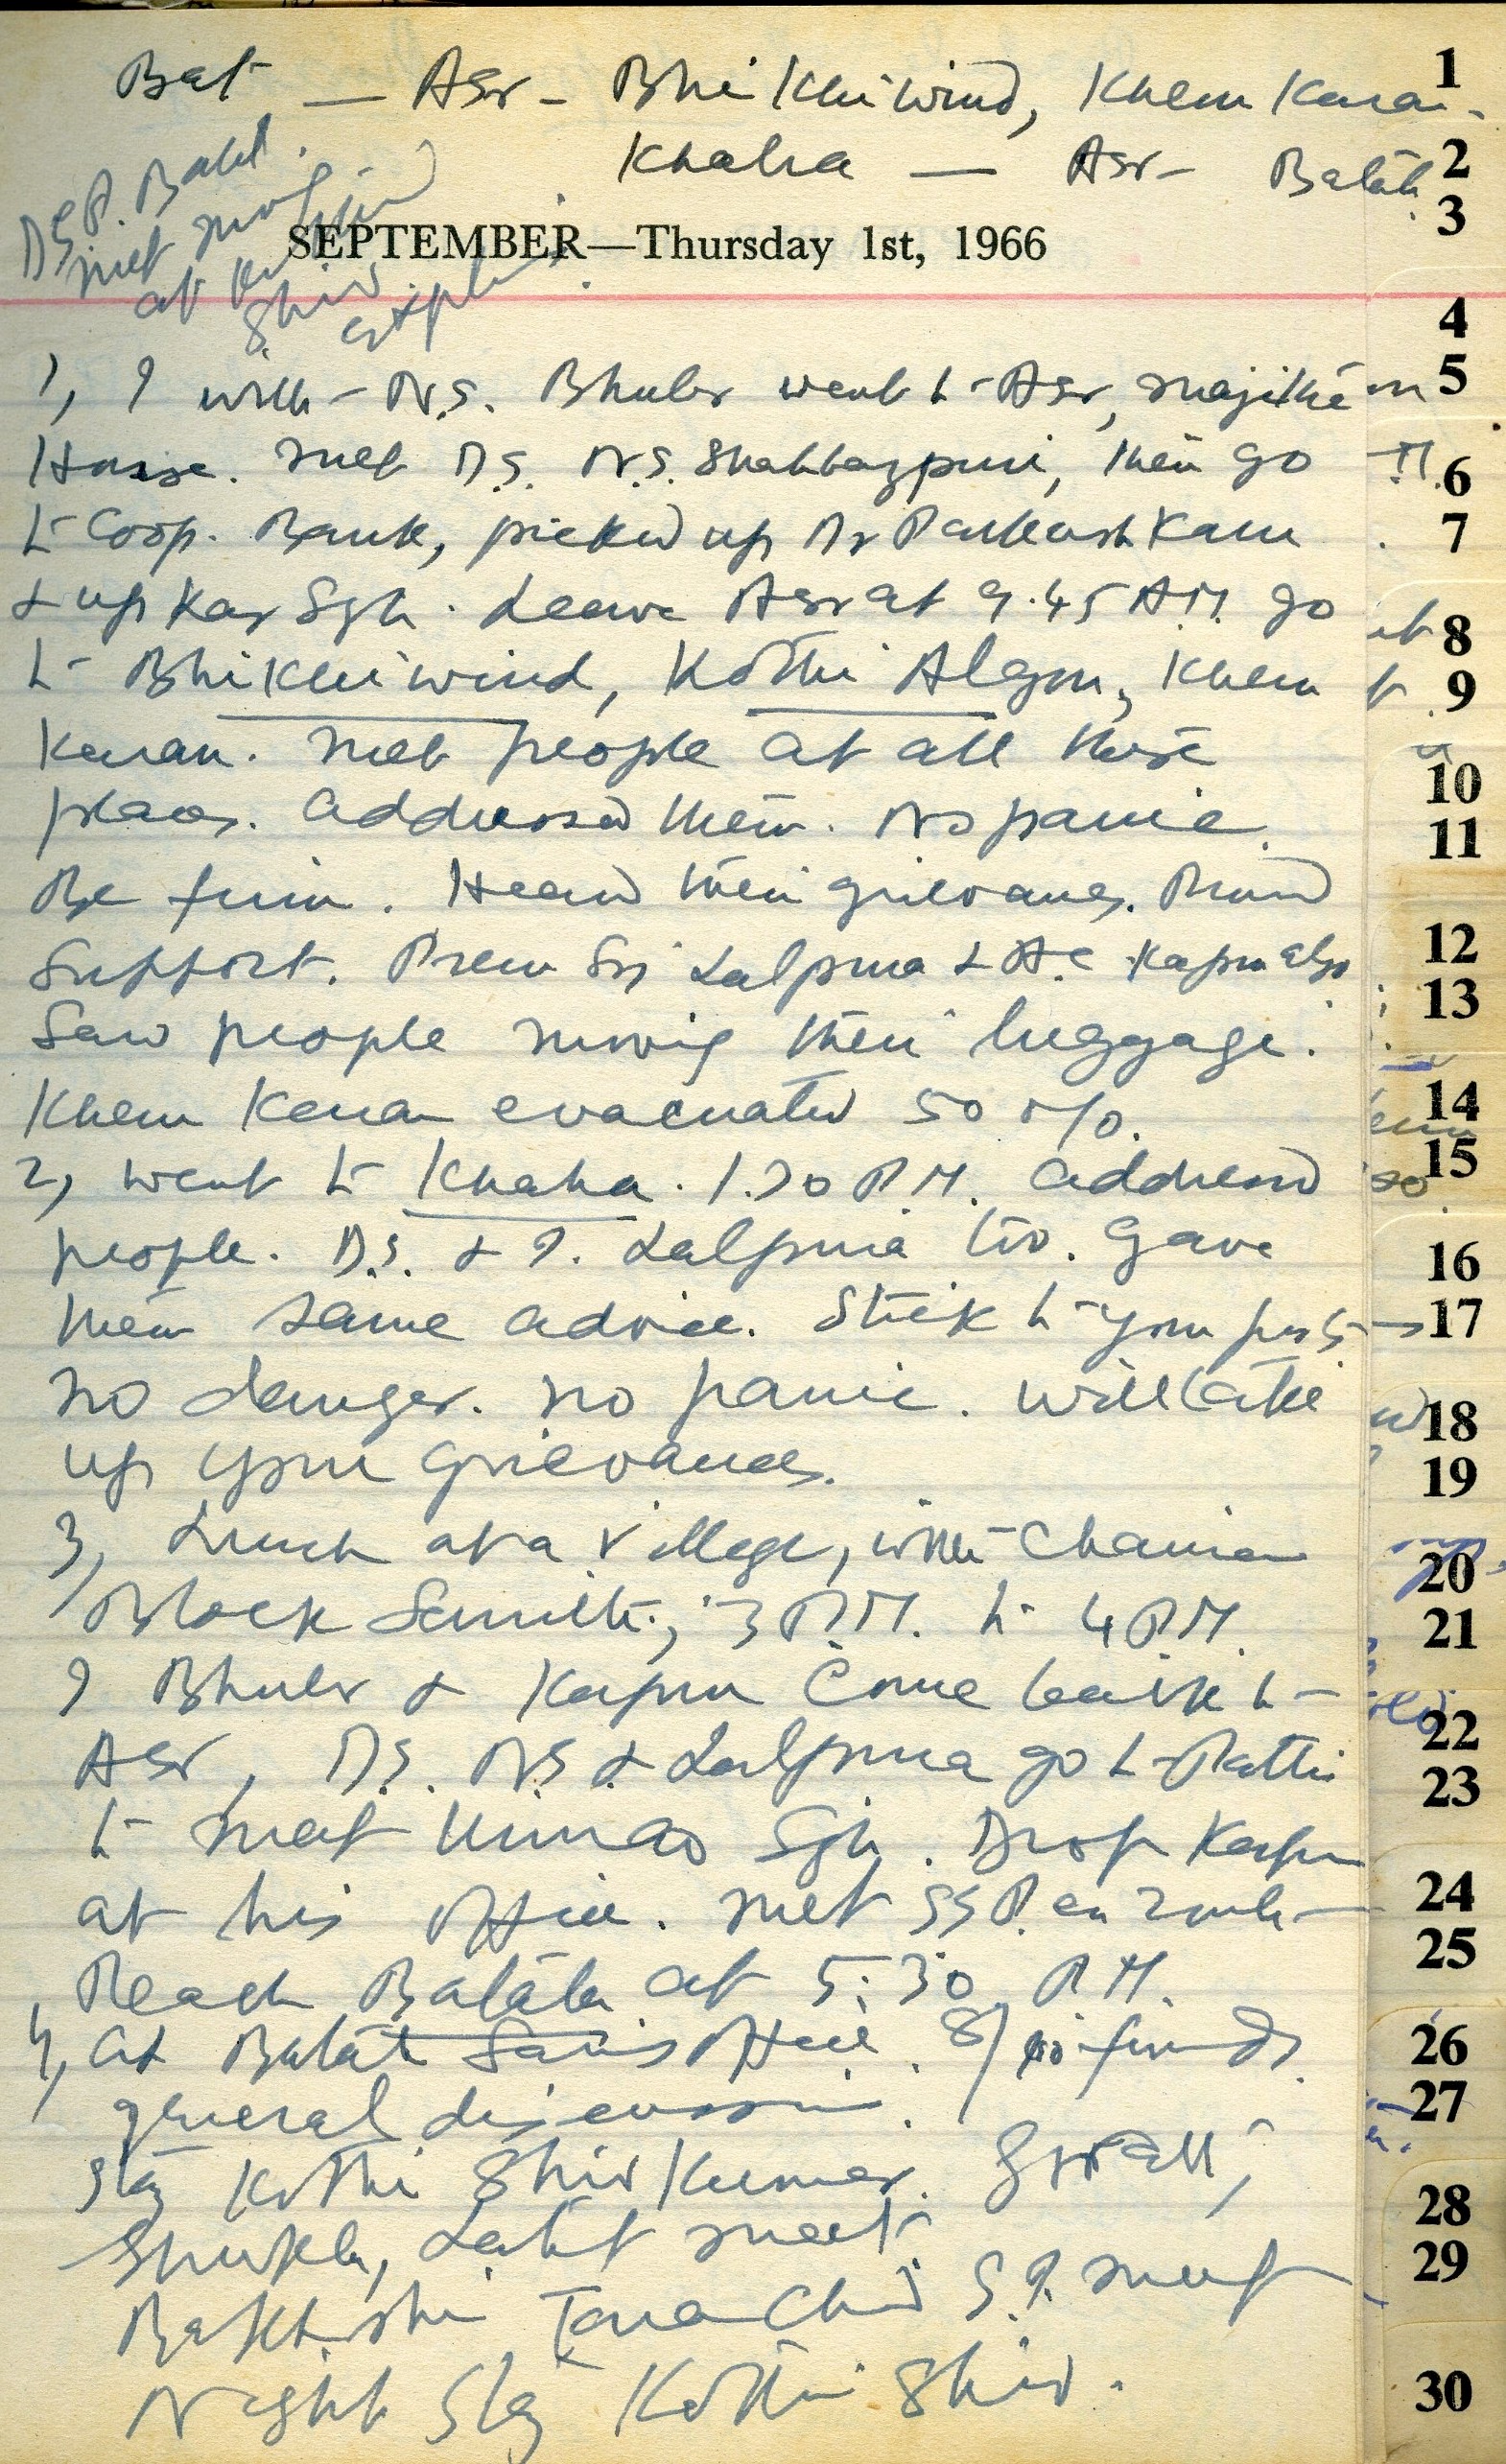 Bat — Asr - Bhikhiwind, Khem Karan
Khalra — Asr - Batala
DSP. Batala
met
at
Shiv.
SEPTEMBER—Thursday 1st, 1966
1, I with N.S. Bhuler went to Asr, Majithia
House. Met D.S. N.S. Shahbazpuri, then go
to Coop. Bank, picked up Dr Parkash Kaur
& up Kar Sgh. Leave Asr at 9.45 A.M. go
to Bhikhiwind, Kothi Algon, Khem
Karan. Met people at all these
places. Addressed them. No panic.
Be firm. Heard their grievances.
Support. Prem Sgh Lalpura & A.C. Kapur also
Saw people moving their luggage.
Khem Karan evacuated 50 %.
2, went to Khalra. 1.30 P.M. addressed
people. D.S. & I. Lalpura too. Gave
them same advice. Stick to your posts
no danger. no panic. will take
up your grievances.
3, Lunch at a village, with Chairman
Block Samiti, 3 P.M. to 4 P.M.
I Bhuler & Kapur come back to
Asr, D.S. N.S & Lalpura go to Patti
to meet Umrao Sgh. Drop Kapur
at his office. Met SSP. en route
Reach Batala at 5.30 P.M.
4, at Batala office.
general discussion.
Stay Kothi Shiv Kumar.
Shukla, Lalit meet.
Bakhshi Tara Chand S.I. meet
Night Stay Kothi Shiv.
1
2
3
4
5
6
7
8
9
10
11
12
13
14
15
16
17
18
19
20
21
22
23
24
25
26
27
28
29
30